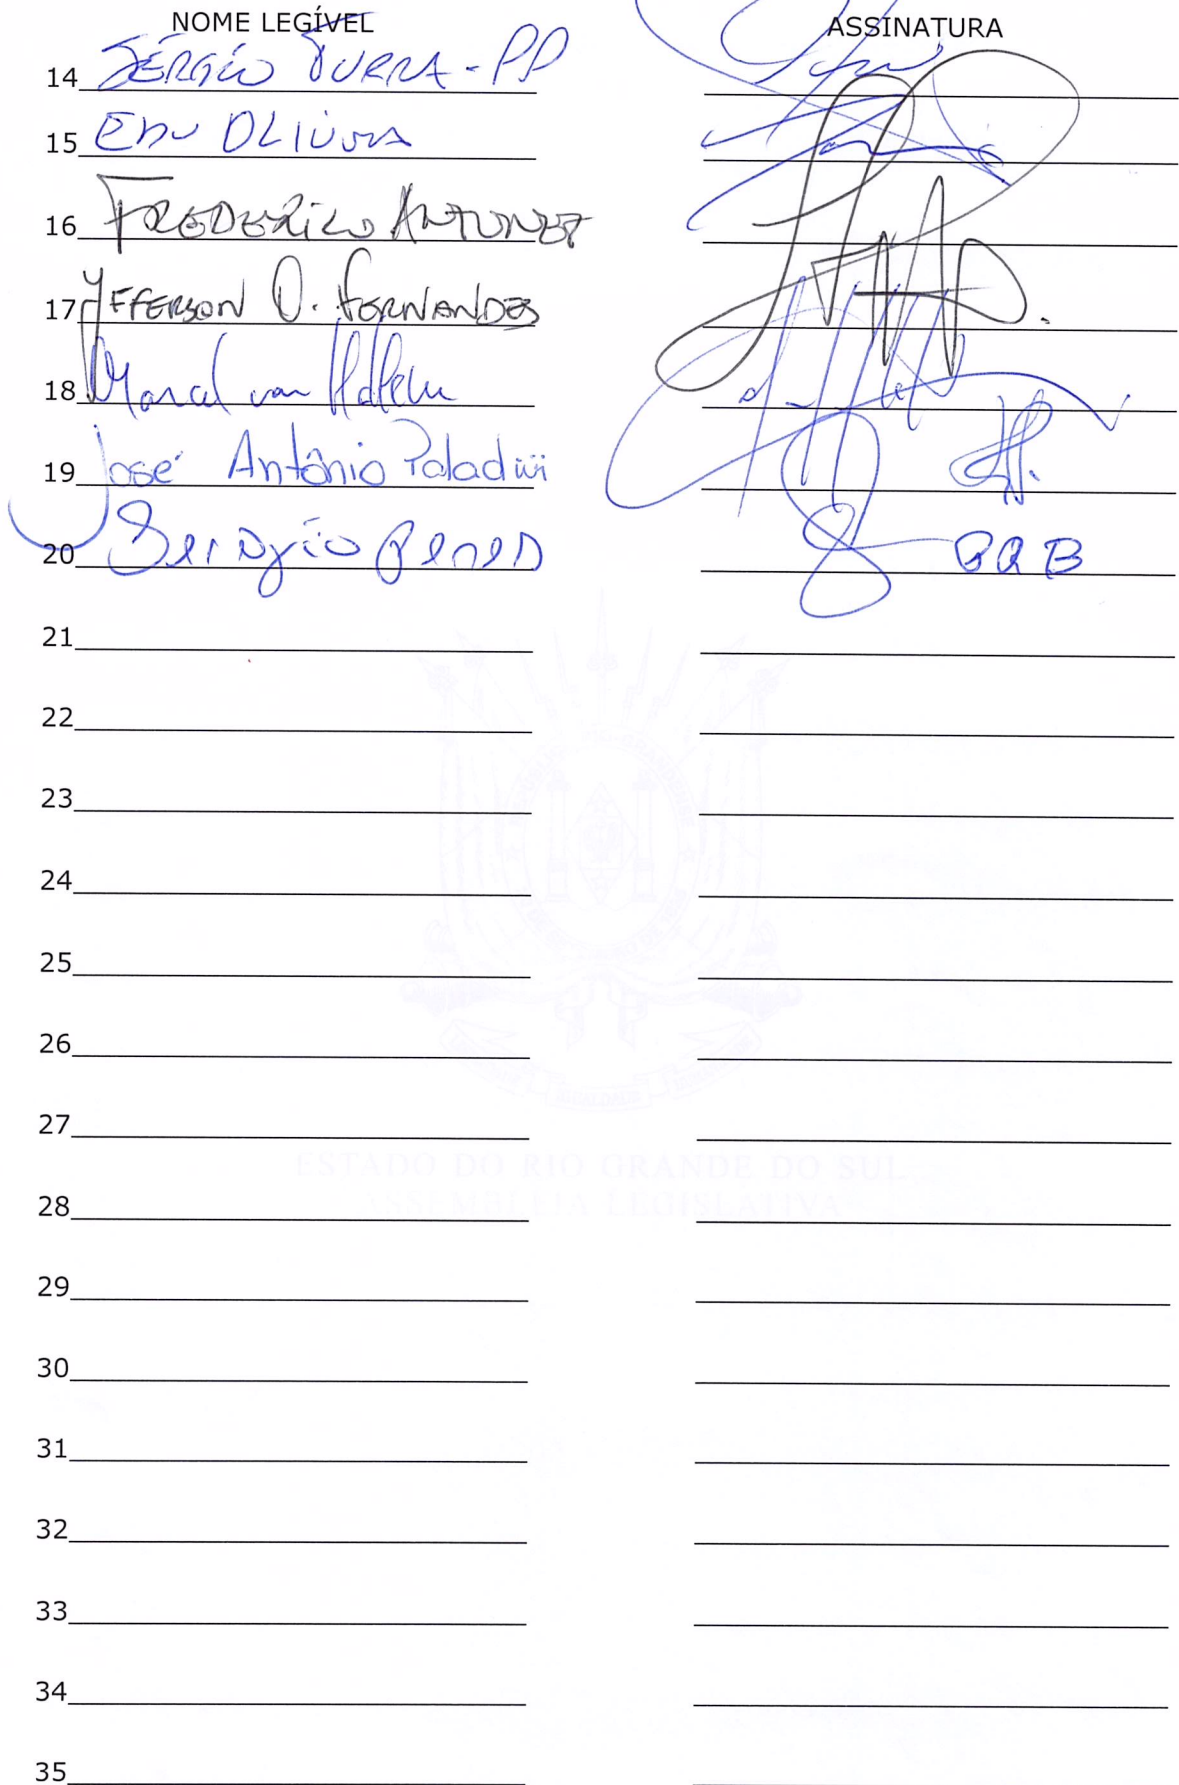 NOME LEGÍVEL ASSINATURA
14 SÉRGIO TURRA - PP
15 EDU OLIVEIRA
16 FREDERICO ANTUNES
17 JEFFERSON O. FERNANDES
18 Marcel van Hattem
19 José Antônio Paladini
20 Sergio Peres PRB
21
22
23
24
25
26
27
ESTADO DO RIO GRANDE DO SUL
28
ASSEMBLEIA LEGISLATIVA
29
30
31
32
33
34
35